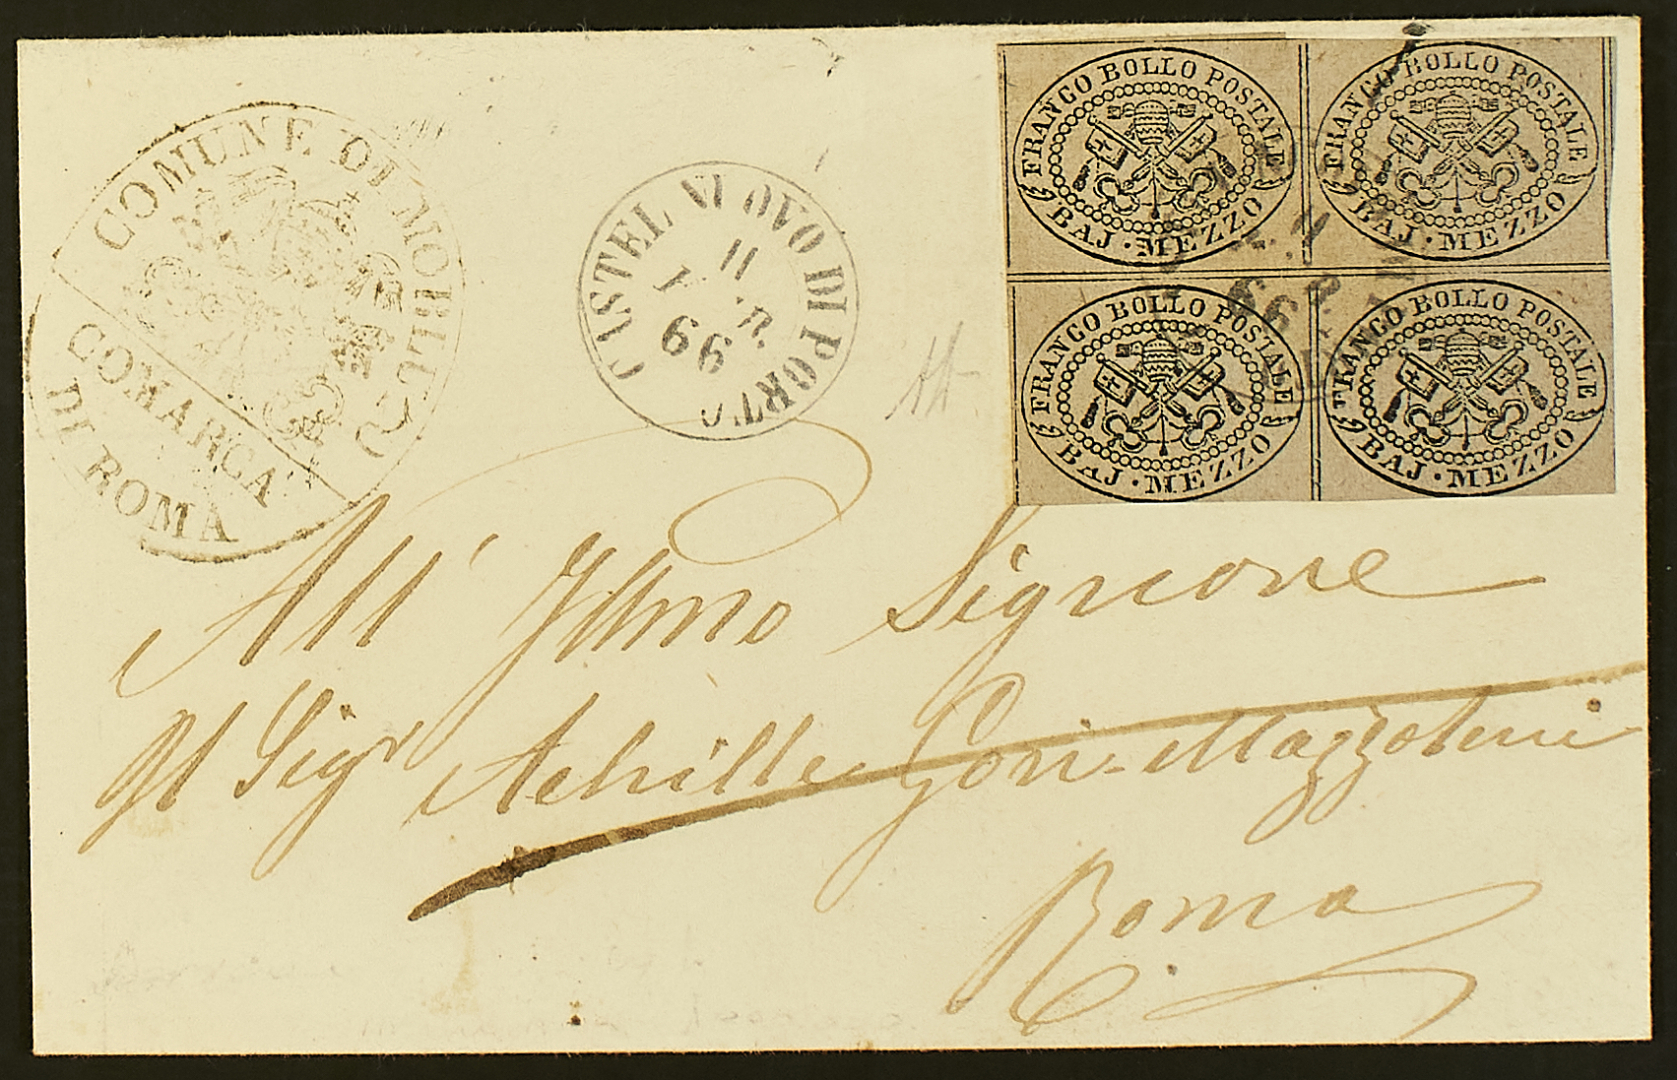 COMUNE DI MORLUPO
COMARCA
DI ROMA
CASTEL NUOVO DI PORTO
11
66
FRANCO BOLLO POSTALE
BAJ · MEZZO
FRANCO BOLLO POSTALE
BAJ · MEZZO
66
FRANCO BOLLO POSTALE
BAJ · MEZZO
FRANCO BOLLO POSTALE
BAJ · MEZZO
All' Illmo Signore
Il Sigr Achille Gori-Mazzoleni
Roma